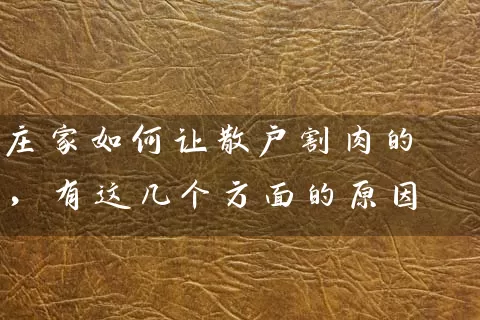 庄家如何让散户割肉的
，有这几个方面的原因